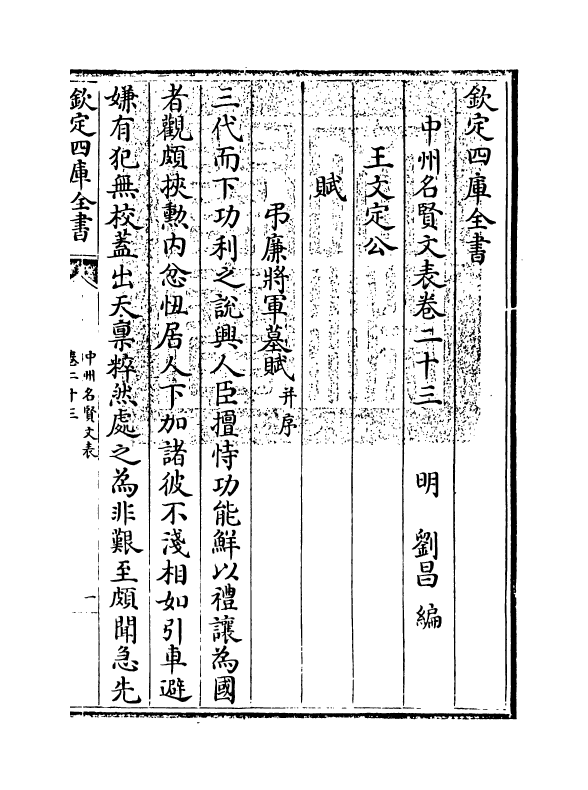 欽定四庫全書
中州名賢文表卷二十三
明 劉昌 編
王文定公
賦
弔廉將軍墓賦 并序
三代而下功利之說興人臣擅恃功能鮮以禮讓為國
者觀頗挾勲内忿忸居人下加諸彼不淺相如引車避
嫌有犯無校蓋出天稟粹然處之為非艱至頗聞急先
欽定四庫全書
中州名賢文表
卷二十三
一